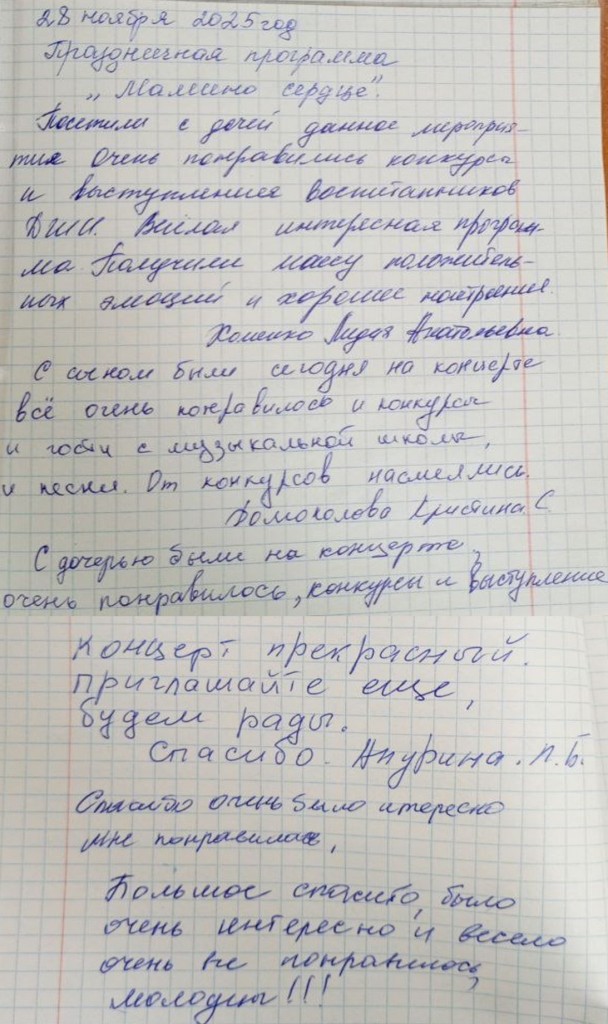 28 ноября 2025 год
Праздничная программа
„Мамино сердце".
Посетили с дочей данное мероприя-
тие очень понравились конкурсы
и выступление воспитанников
ДШИ. Весёлая интересная програм-
ма. Получили массу положитель-
ных эмоций и хорошее настроение.
Лидия Анатольевна.
С сыном были сегодня на концерте
всё очень понравилось и конкурсы
и гости с музыкальной школы,
и песни. От конкурсов насмеялись.
Кристина С.
С дочерью были на концерте,
очень понравилось, конкурсы и выступление
концерт прекрасный.
приглашайте еще,
будем рады.
Спасибо. Апурина. Л.Б.
Спасибо очень было итересно
мне понравилась,
Большое спасибо, было
очень интересно и весело
очень понравилось,
молодцы!!!